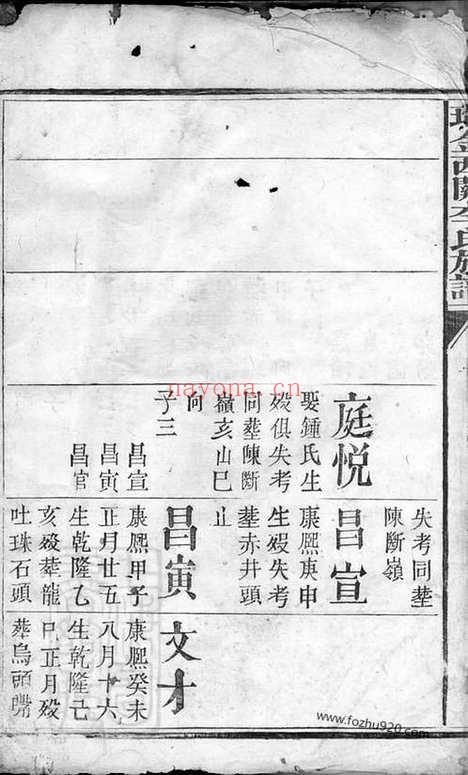 瑞金西關李氏族譜
庭悦
娶鍾氏生
殁俱失考
同塟陳斷
嶺亥山巳
向
子三
昌宣
昌寅
昌官
失考同塟
陳斷嶺
昌宣
康熙庚申
生殁失考
塟赤井頭
止
昌寅
康熙甲子
正月廿五
生乾隆乙
亥殁塟龍
吐珠石頭
文才
康熙癸未
八月十六
生乾隆己
巳正月殁
葬烏頭嘴
nayona.cn
www.fozhu920.com